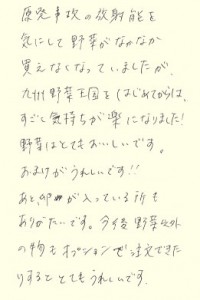 原発事故の放射能を
気にして野菜がなかなか
買えなくなっていましたが、
九州野菜王国をはじめてからは、
すごし気持ちが楽になりました!
野菜はとてもおいしいです。
おまけがうれしいです!!
あと、卵が入っている所も
ありがたいです。今後野菜以外
の物もオプションで注文できた
りするととてもうれしいです。